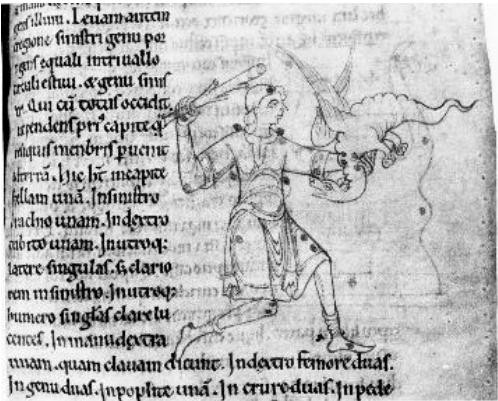 gens illum. Leuam autem
regione sinistri genu por
gens equali interuallo
circuli estiui. & genu sinis
tr. Qui cū totus occidit
capite
reliquis menbris puenit
ad terrā. Hic ht incapite
stellam unā. Insinistro
brachio unam. Indextro
cubito unam. Inutroq;
latere singulas. s; clario
rem insinistro. Inutroq;
humero singłas clare lu
centes. Inmanu dextra
unam. quam clauam dicunt. Indextro femore duas.
In genu duas. Inpoplite unā. In crure duas. Inpede